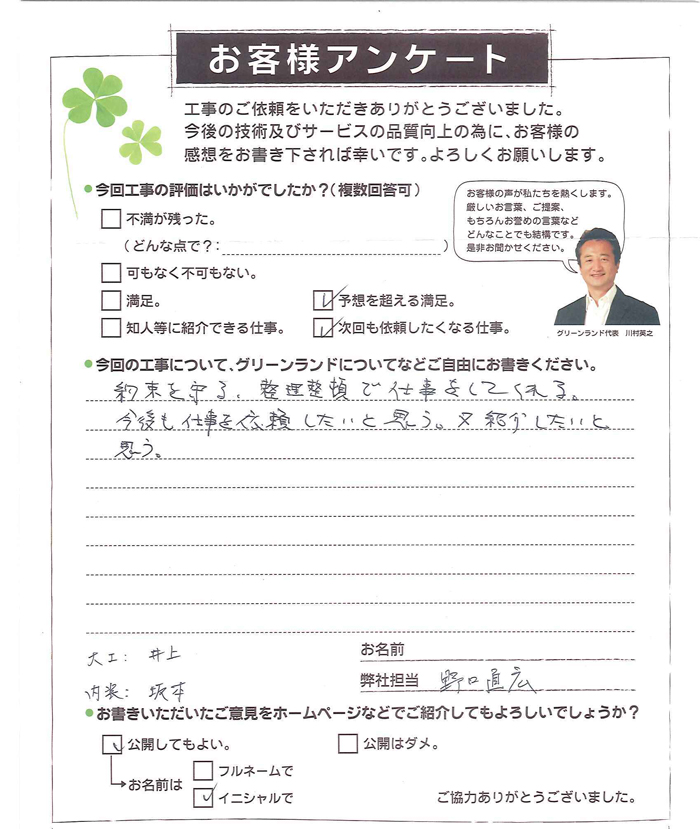 お客様アンケート
工事のご依頼をいただきありがとうございました。
今後の技術及びサービスの品質向上の為に、お客様の
感想をお書き下されば幸いです。よろしくお願いします。
●今回工事の評価はいかがでしたか？(複数回答可)
お客様の声が私たちを熱くします。
厳しいお言葉、ご提案、
もちろんお誉めの言葉など
どんなことでも結構です。
是非お聞かせください。
不満が残った。
(どんな点で？: )
可もなく不可もない。
満足。
予想を超える満足。
知人等に紹介できる仕事。
次回も依頼したくなる仕事。
グリーンランド代表 川村英之
●今回の工事について、グリーンランドについてなどご自由にお書きください。
約束を守る、整理整頓で仕事をしてくれる。
今後も仕事を依頼したいと思う。又紹介したいと
思う。
大工: 井上
お名前
内装: 坂本
弊社担当 野口直広
●お書きいただいたご意見をホームページなどでご紹介してもよろしいでしょうか？
公開してもよい。
公開はダメ。
お名前は
フルネームで
イニシャルで
ご協力ありがとうございました。